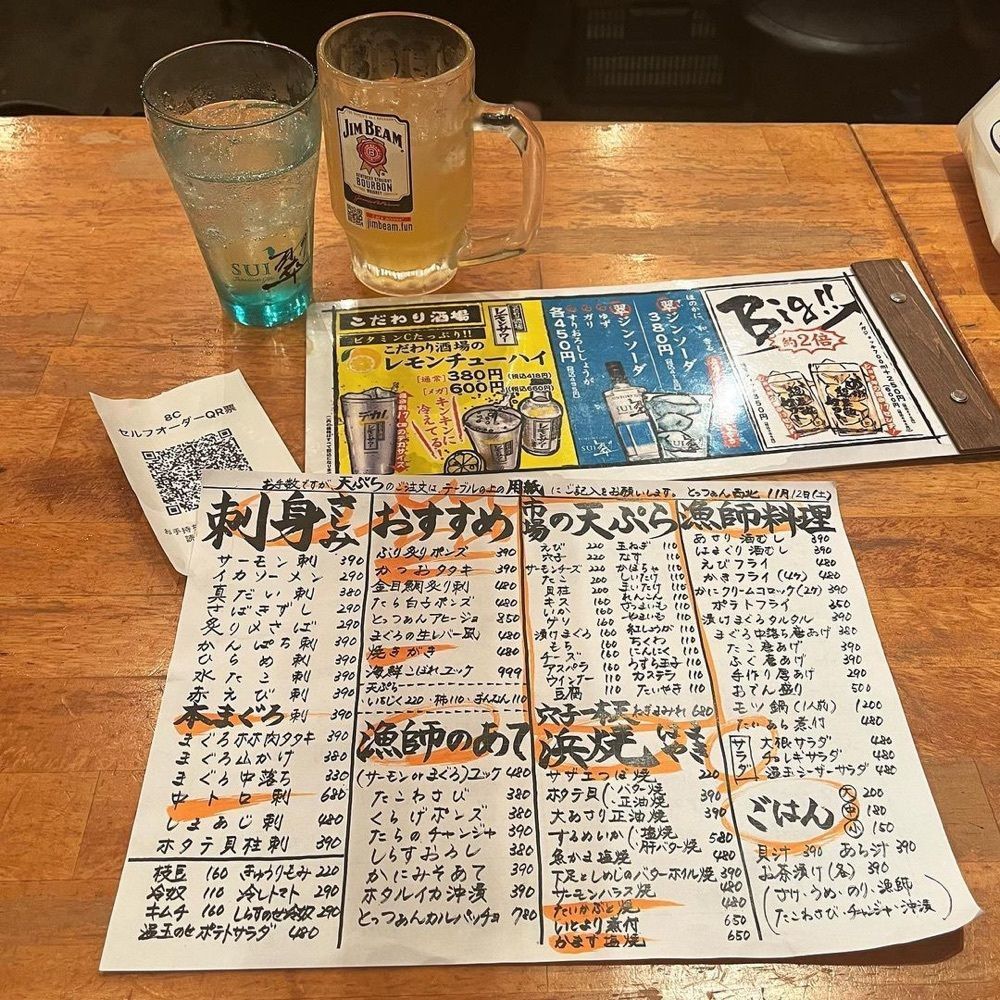 SUI
翠
JIM BEAM
KENTUCKY STRAIGHT
BOURBON
WHISKEY
jimbeam.fun
8C
セルフオーダーQR票
こだわり酒場
ビタミンCたっぷり!!
こだわり酒場の
レモンチューハイ
[通常] 380円 (税込418円)
[メガ] 600円 (税込660円)
キンキンに
冷えてる!!
翠ジンソーダ
380円
翠ジンソーダ
ゆず
ガリ
すりおろししょうが
各450円
SUI
Big!!
約2倍
お手数ですが、天ぷらのご注文は、テーブルの上の用紙にご記入をお願いします。 とっつぁん西北 11月12日(土)
刺身 さしみ
サーモン刺 390
イカソーメン 290
真だい刺 380
さばきずし 290
炙り〆さば 290
かんぱち刺 390
ひらめ刺 390
水たこ刺 390
赤えび刺 390
本まぐろ刺 390
まぐろホホ肉タタキ 390
まぐろ山かけ 380
まぐろ中落ち 330
中トロ刺 680
しまあじ刺 480
ホタテ貝柱刺 480
枝豆 160 きゅうりもみ 220
冷奴 110 冷しトマト 290
キムチ 160 しらすのせ冷奴 290
温玉のせポテトサラダ 480
おすすめ
ぶり炙りポンズ 390
かつおタタキ 390
金目鯛炙り刺 480
たら白子ポンズ 480
とっつぁんアヒージョ 850
まぐろの生レバー風 480
焼きがき 480
海鮮こぼれユッケ 999
天ぷら
いちじく220・柿110・ぎんなん110
漁師のあて
(サーモンorまぐろ)ユッケ 480
たこわさび 380
くらげポンズ 380
たらのチャンジャ 390
しらすおろし 380
かにみそあて 390
ホタルイカ沖漬 390
とっつぁんカルパッチョ 780
市場の天ぷら
えび 220 玉ねぎ 110
穴子 220 なす 110
サーモンチーズ 220 かぼちゃ 110
たこ 200 しいたけ 110
貝柱 200 まいたけ 110
キス 160 れんこん 110
いか 160 さつまいも 110
ゲソ 160 やまいも 110
漬けまぐろ 160 紅しょうが 110
もち 160 ちくわ 110
チーズ 160 にんにく 110
アスパラ 160 うずら玉子 160
ウインナー 110 カステラ 110
豆腐 110 たいやき 110
穴子一本天 680
浜焼 はまやき
サザエつぼ焼 220
ホタテ貝(バター焼・正油焼 390
大あさり正油焼 390
するめいか(塩焼・肝バター焼 580
魚かま塩焼 480
下足としめじのバターホイル焼 390
サーモンハラス焼 480
たいかぶと焼 480
いとより煮付 650
かます塩焼 650
漁師料理
あさり酒むし 390
はまぐり酒むし 390
えびフライ 480
かきフライ(4ケ) 480
かにクリームコロッケ(2ケ) 390
ポテトフライ 350
漬けまぐろタルタル 390
まぐろ中落ち唐あげ 380
たこ唐あげ 390
ふぐ唐あげ 390
手作り厚あげ 290
おでん盛り 500
モツ鍋(1人前) 1200
たいあら煮付 480
サラダ
大根サラダ 480
チョレギサラダ 480
温玉シーザーサラダ 480
ごはん
大 200
中 180
小 150
貝汁 390 あら汁 390
お茶漬け(各) 390
(さけ・うめ・のり・漁師
たこわさび・チャンジャ・沖漬)